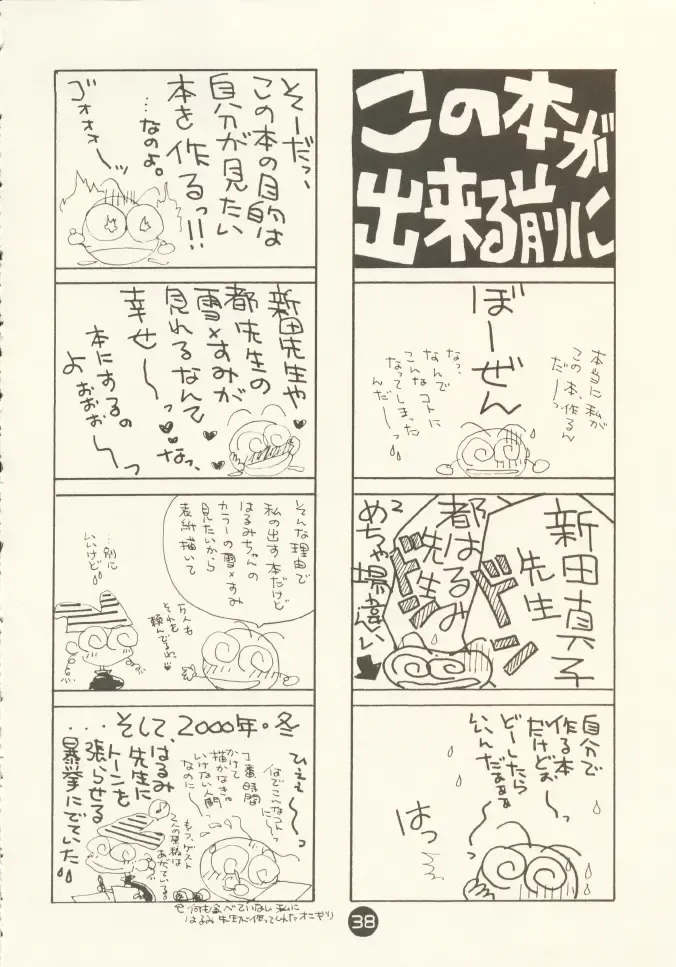 この本が
出来る前に
本当に私が
この本、作るん
だ〜っ
ぼーぜん
なっ、
なんで
こんなコトに
なってしまった
んだ〜っ
新田真子
先生
ドン
都はるみ
先生
ドン
めちゃ場が悪い
自分で
作る本
だけどぉ〜っ
どーしたら
いいんだぁぁぁ
はっ
そーだっ、
この本の目的は
自分が見たい
本を作るっ!!
…なのよ。
ゴォォォーッ
新田先生や
都先生の
雪×すみが
見れるなんて
幸せ〜っ
なっ、
本にするの
よぉぉぉ〜っ
そんな理由で
私の出す本だけど
はるみちゃんの
カラーの雪×すみ
見たいから
表紙描いて
…別に
いいけど
...そして、2000年・冬
ひぇぇ〜っ
何でこんなコトに〜っ
1番時間
かけて
描かなきゃ
いけない人間
なのに〜
もう、ゲスト
2人の原稿は
あがっている。
はるみ
先生に
トーンを
張らせる
暴挙にでていた
何も食べていない私に
はるみ先生が作ってくれたオニギリ
38